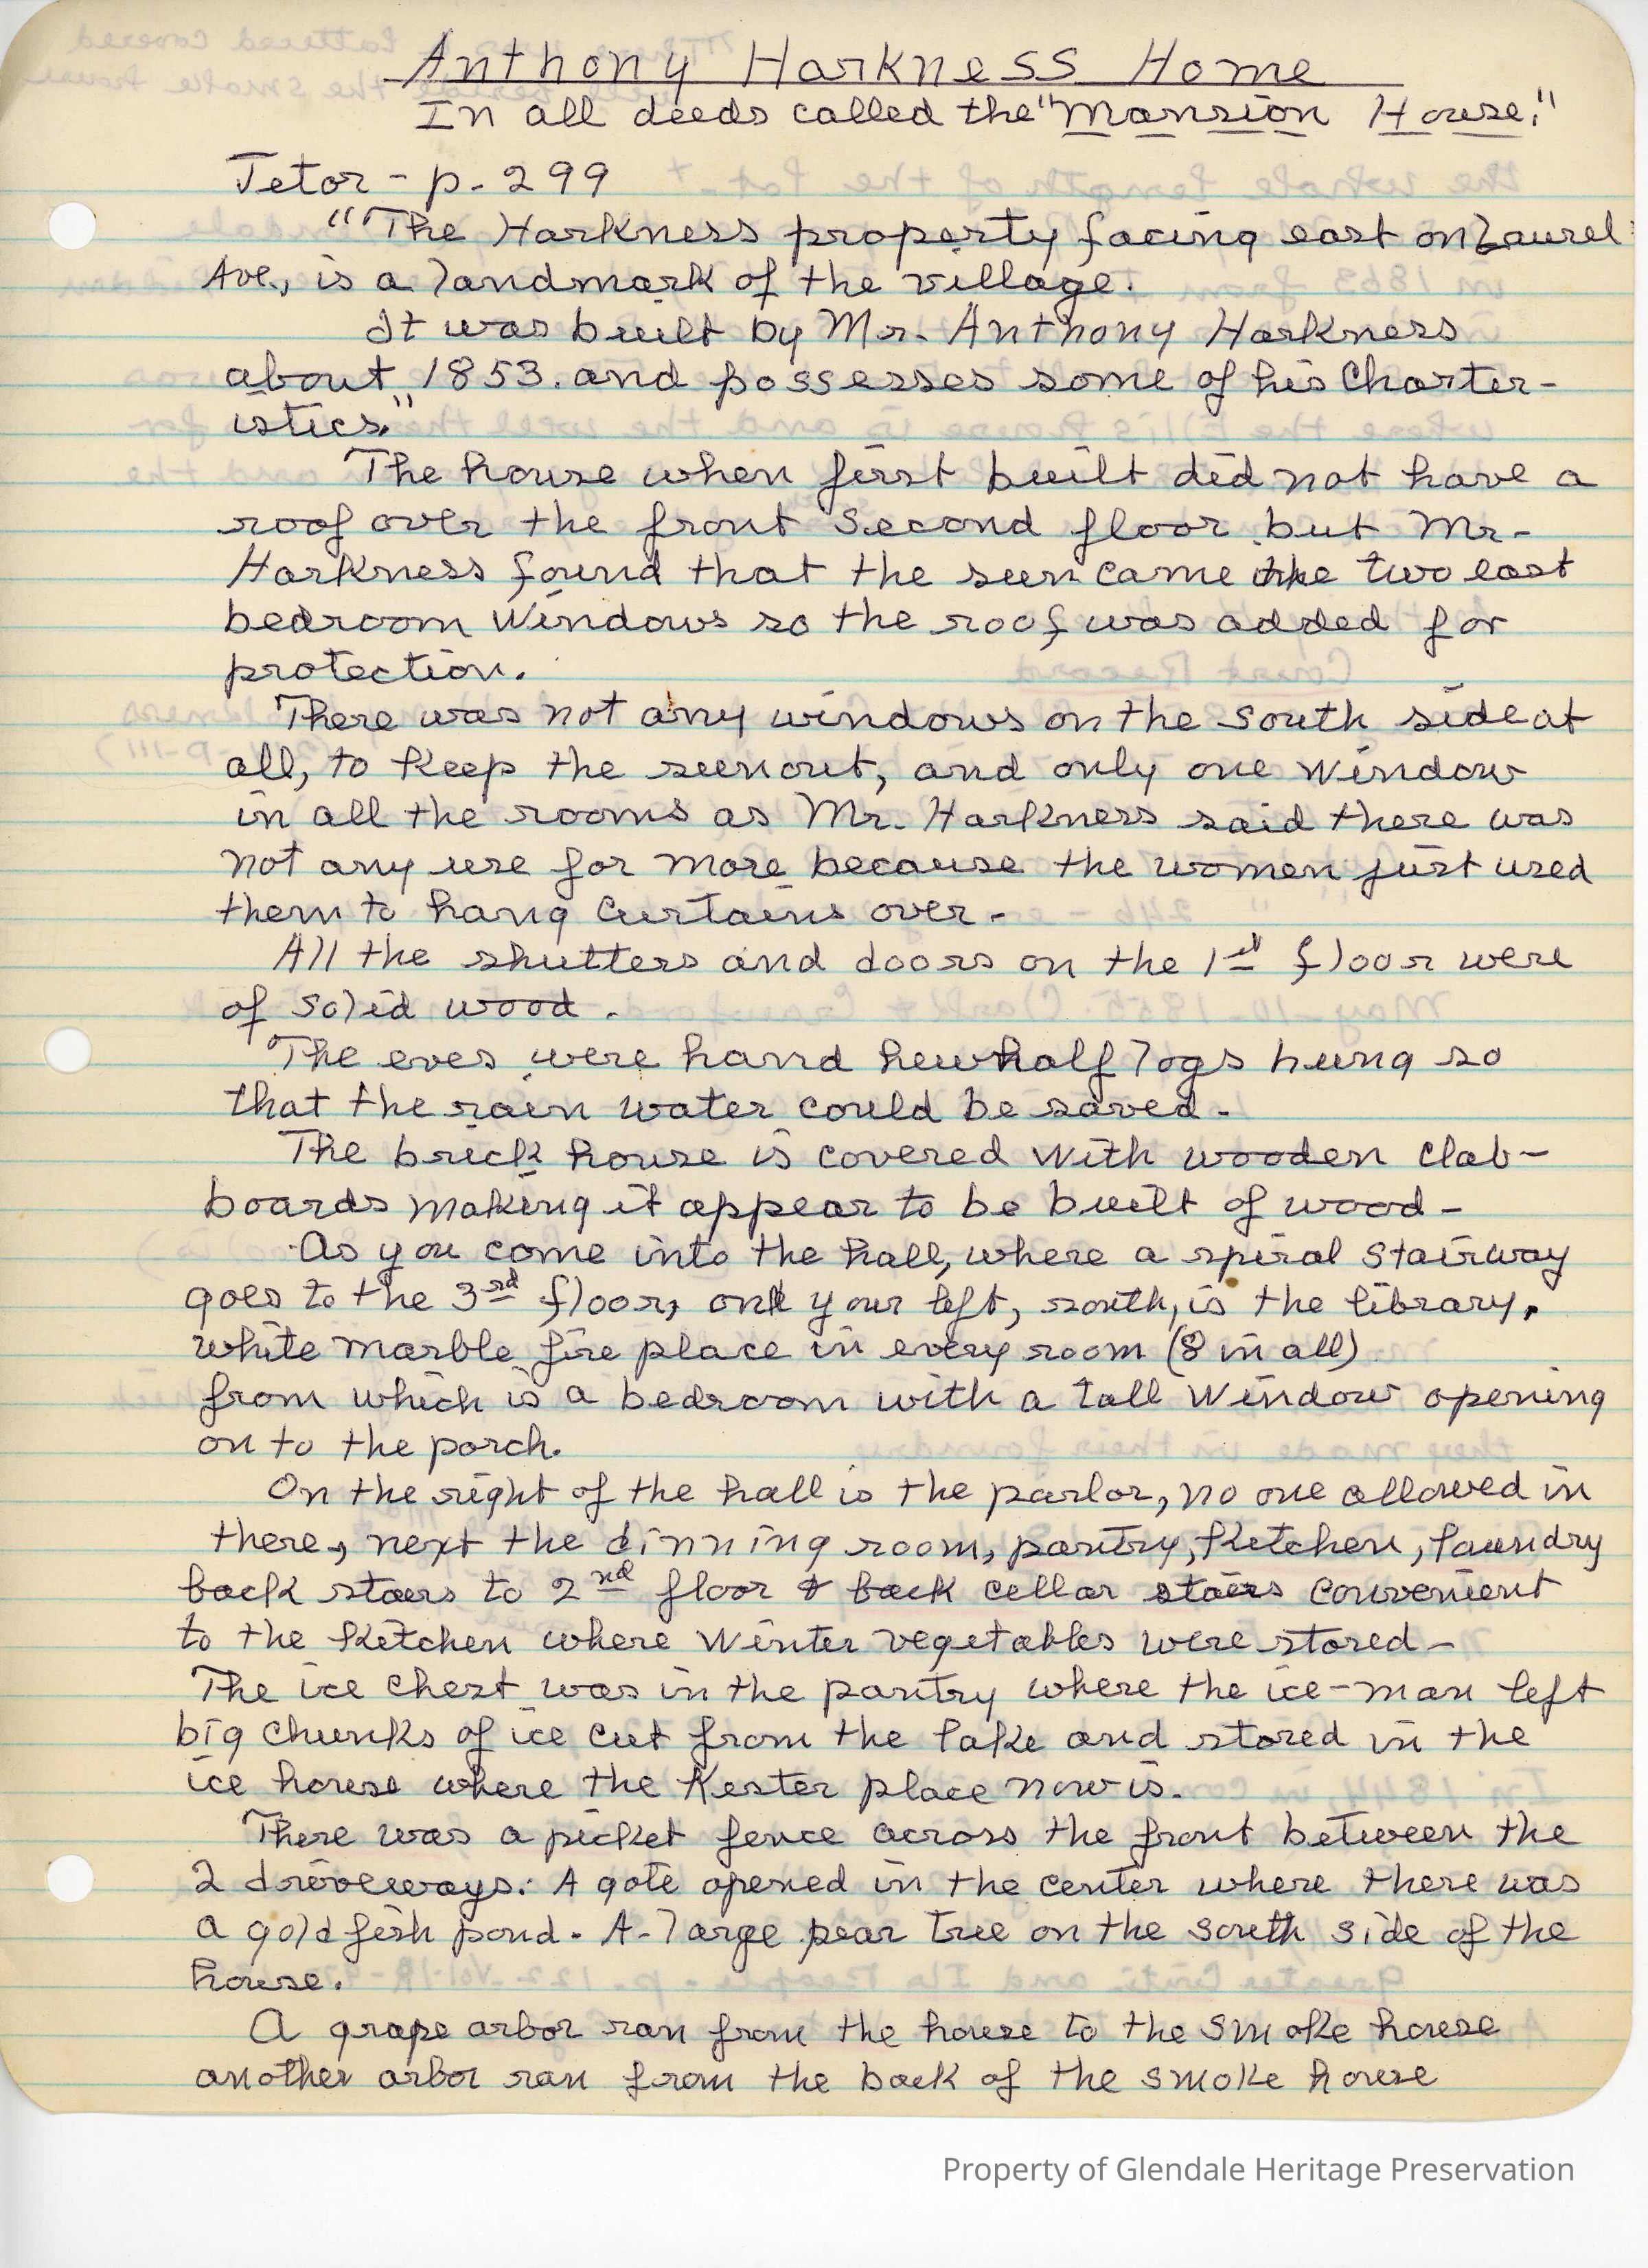 Anthony Harkness Home
In all deeds called the "Mansion House."
Tetor - p. 299
"The Harkness property facing east on Laurel
Ave., is a landmark of the village.
It was built by Mr. Anthony Harkness
about 1853. and possesses some of his Charter-
istics."
The house when first built did not have a
roof over the front second floor but Mr.
Harkness found that the sun came the two east
bedroom windows so the roof was added for
protection.
There was not any windows on the south side at
all, to keep the sun out, and only one window
in all the rooms as Mr. Harkness said there was
not any use for more because the women just used
them to hang curtains over.
All the shutters and doors on the 1st floor were
of solid wood.
The eves were hand hewn half logs hung so
that the rain water could be saved.
The brick house is covered with wooden clab-
boards making it appear to be built of wood -
As you come into the hall, where a spiral stairway
goes to the 3rd floor, on your left, south, is the library.
white marble fire place in every room (8 in all)
from which is a bedroom with a tall window opening
on to the porch.
On the right of the hall is the parlor, no one allowed in
there, next the dinning room, pantry, kitchen, laundry
back stairs to 2nd floor & back cellar stairs convenient
to the kitchen where winter vegetables were stored -
The ice chest was in the pantry where the ice-man left
big chunks of ice cut from the lake and stored in the
ice house where the Kester place now is.
There was a picket fence across the front between the
2 driveways. A gate opened in the center where there was
a gold fish pond. A large pear tree on the south side of the
house.
A grape arbor ran from the house to the smoke house
another arbor ran from the back of the smoke house
Property of Glendale Heritage Preservation